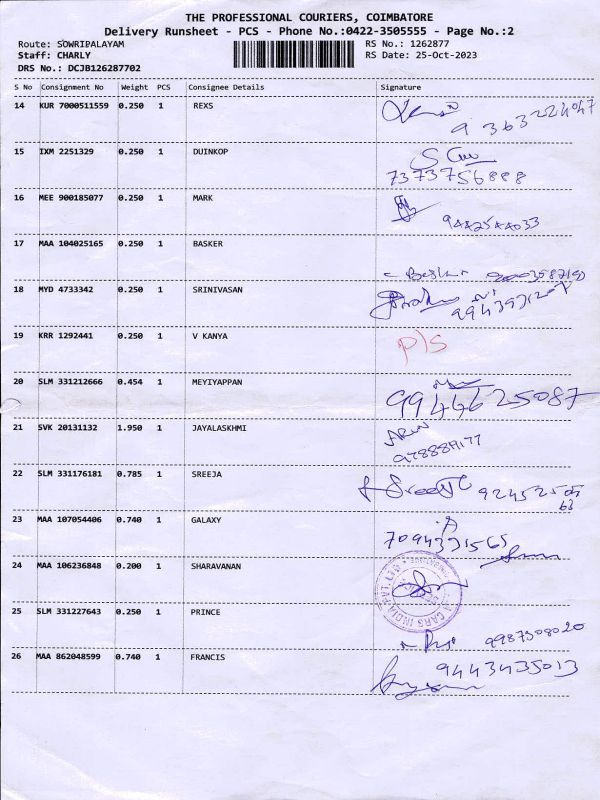 THE PROFESSIONAL COURIERS, COIMBATORE
Delivery Runsheet - PCS - Phone No.:0422-3505555 - Page No.:2
Route: SOWRIPALAYAM RS No.: 1262877
Staff: CHARLY RS Date: 25-Oct-2023
DRS No.: DCJB126287702
S No Consignment No Weight PCS Consignee Details Signature
14 KUR 7000511559 0.250 1 REXS
9363224047
15 IXM 2251329 0.250 1 DUINKOP
7373756888
16 MEE 900185077 0.250 1 MARK
9442544033
17 MAA 104025165 0.250 1 BASKER
18 MYD 4733342 0.250 1 SRINIVASAN
19 KRR 1292441 0.250 1 V KANYA
P/S
20 SLM 331212666 0.454 1 MEYIYAPPAN
9944625087
21 SVK 20131132 1.950 1 JAYALASKHMI
22 SLM 331176181 0.785 1 SREEJA
23 MAA 107054406 0.740 1 GALAXY
7094331565
24 MAA 106236848 0.200 1 SHARAVANAN
CARS INDIA
25 SLM 331227643 0.250 1 PRINCE
9987308020
26 MAA 862048599 0.740 1 FRANCIS
9443435013